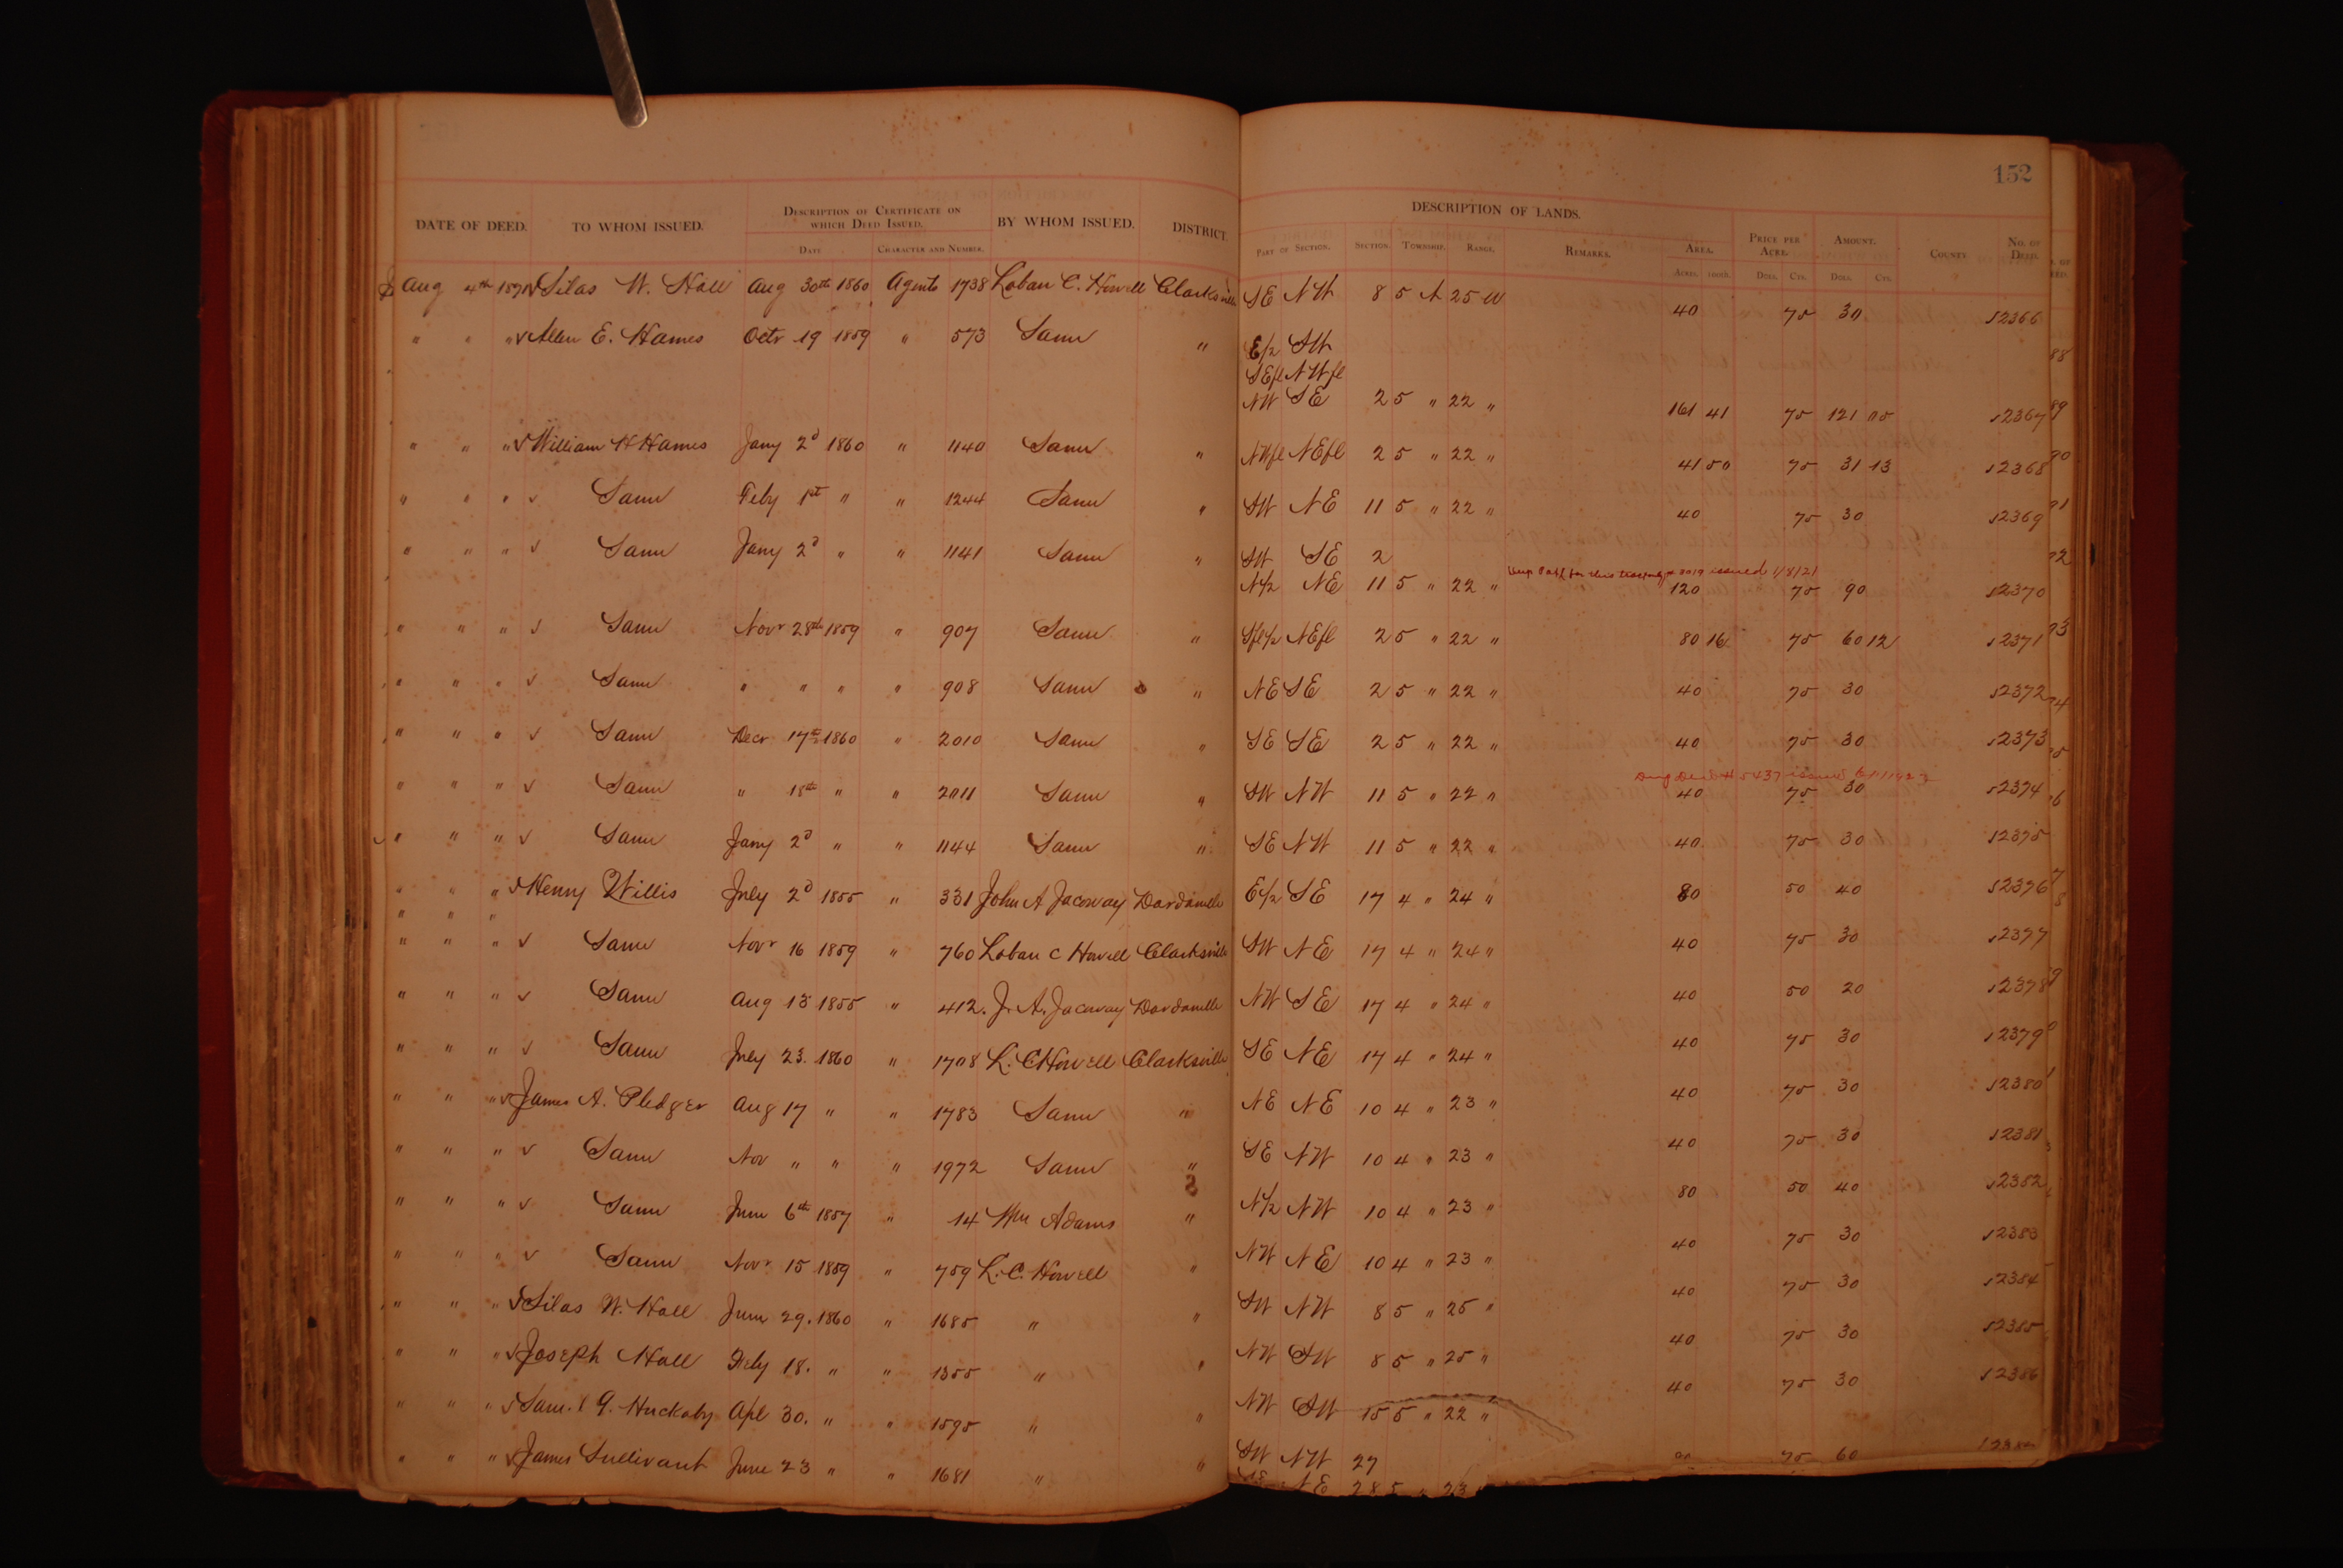 152
DATE OF DEED. TO WHOM ISSUED. DESCRIPTION OF CERTIFICATE ON WHICH DEED ISSUED. BY WHOM ISSUED. DISTRICT. DESCRIPTION OF LANDS. PRICE PER ACRE. AMOUNT. COUNTY NO. OF DEED.
DATE CHARACTER AND NUMBER. PART OF SECTION. SECTION. TOWNSHIP. RANGE. REMARKS. AREA.
ACRES. 100ths. DOLLS. CTS. DOLLS. CTS.
Aug 4th 1871 Silas W. Hall Aug 30th 1860 Agents 1738 Laban C. Howell Clarksville SE NW 8 5 N 25 W 40 75 30 12366
" " " Allen E. Hames Octr 19 1859 " 573 Same " E/2 SW
SEfl NWfl
NW SE 2 5 " 22 " 161 41 75 121 05 12367
" " " William H Hames Jany 2d 1860 " 1140 Same " NWfl NEfl 2 5 " 22 " 41 50 75 31 13 12368
" " " Same Feby 1st " " 1244 Same " SW NE 11 5 " 22 " 40 75 30 12369
" " " Same Jany 2d " " 1141 Same " SW SE 2
issued 1/8/21
N/2 NE 11 5 " 22 " 120 75 90 12370
" " " Same Novr 28th 1859 " 907 Same " Sfl/2 NEfl 2 5 " 22 " 80 16 75 60 12 12371
" " " Same " " " " 908 Same " NE SE 2 5 " 22 " 40 75 30 12372
" " " Same Decr 17th 1860 " 2010 Same " SE SE 2 5 " 22 " 40 75 30 12373
5437 issued
" " " Same " 18th " " 2011 Same " SW NW 11 5 " 22 " 40 75 30 12374
" " " Same Jany 2d " " 1144 Same " SE NW 11 5 " 22 " 40 75 30 12375
" " " Henry Willis July 2d 1855 " 331 John A Jacoway Dardanelle E/2 SE 17 4 " 24 " 80 50 40 12376
" " "
" " " Same Novr 16 1859 " 760 Laban C Howell Clarksville SW NE 17 4 " 24 " 40 75 30 12377
" " " Same Aug 13 1855 " 412. J. A. Jacoway Dardanelle NW SE 17 4 " 24 " 40 50 20 12378
" " " Same July 23. 1860 " 1708 L. C Howell Clarksville SE NE 17 4 " 24 " 40 75 30 12379
" " " James A. Pledger Aug 17 " " 1783 Same " NE NE 10 4 " 23 " 40 75 30 12380
" " " Same Nov " " " 1972 Same " SE NW 10 4 " 23 " 40 75 30 12381
" " " Same June 6th 1857 " 14 Wm Adams " N/2 NW 10 4 " 23 " 80 50 40 12382
" " " Same Novr 15 1859 " 759 L. C. Howell " NW NE 10 4 " 23 " 40 75 30 12383
" " " Silas W. Hall June 29. 1860 " 1685 " " SW NW 8 5 " 25 " 40 75 30 12384
" " " Joseph Hall Feby 18. " " 1355 " " NW SW 8 5 " 25 " 40 75 30 12385
" " " Saml G. Huckaby Apl 30. " " 1595 " " NW SW 15 5 " 22 " 40 75 30 12386
" " " James Sullivant June 23 " " 1681 " " SW NW 27 75 60
NE 28 5 " 23